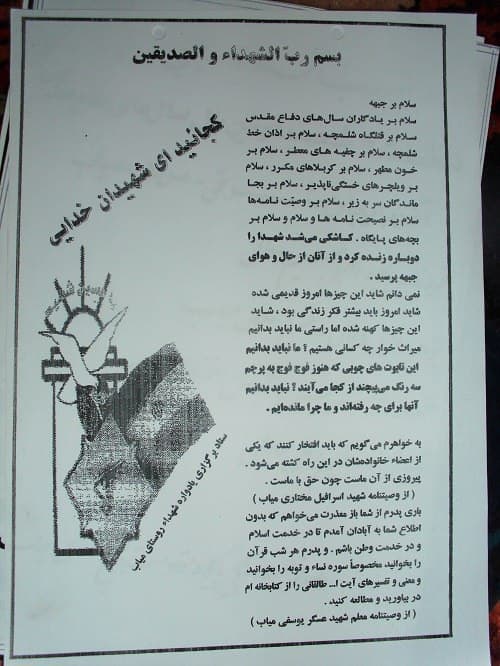 بسم ربّ الشهداء و الصدیقین
کجائید ای شهیدان خدایی
سلام بر جبهه
سلام بر یادگاران سال‌های دفاع مقدس
سلام بر قتلگاه شلمچه ، سلام بر اذان خط
شلمچه ، سلام بر چفیه های معطر ، سلام بر
خون مطهر ، سلام بر کربلاهای مکرر ، سلام
بر ویلچرهای خستگی‌ناپذیر ، سلام بر بجا
ماندگان سر به زیر ، سلام بر وصیّت نامه‌ها
سلام بر نصیحت نامه ها و سلام و سلام بر
بچه‌های پایگاه . کاشکی می‌شد شهدا را
دوباره زنده کرد و از آنان از حال و هوای
جبهه پرسید .
نمی دانم شاید این چیزها امروز قدیمی شده
شاید امروز باید بیشتر فکر زندگی بود ، شاید
این چیزها کهنه شده اما راستی ما نباید بدانیم
میراث خوار چه کسانی هستیم ؟ ما نباید بدانیم
این تابوت های چوبی که هنوز فوج فوج به پرچم
سه رنگ می‌پیچند از کجا می‌آیند ؟ نباید بدانیم
آنها برای چه رفته‌اند و ما چرا مانده‌ایم .
به خواهرم می‌گویم که باید افتخار کنند که یکی
از اعضاء خانواده‌شان در این راه کشته می‌شود .
پیروزی از آن ماست چون حق با ماست .
( از وصیتنامه شهید اسرافیل مختاری میاب )
باری پدرم از شما باز معذرت می‌خواهم که بدون
اطلاع شما به آبادان آمدم تا در خدمت اسلام
و در خدمت وطن باشم . و پدرم هر شب قرآن
را بخوانید مخصوصاً سوره نساء و توبه را بخوانید
و معنی و تفسیرهای آیت ا... طالقانی را از کتابخانه ام
در بیاورید و مطالعه کنید .
( از وصیتنامه معلم شهید عسگر یوسفی میاب )
ستاد برگزاری یادواره شهداء روستای میاب